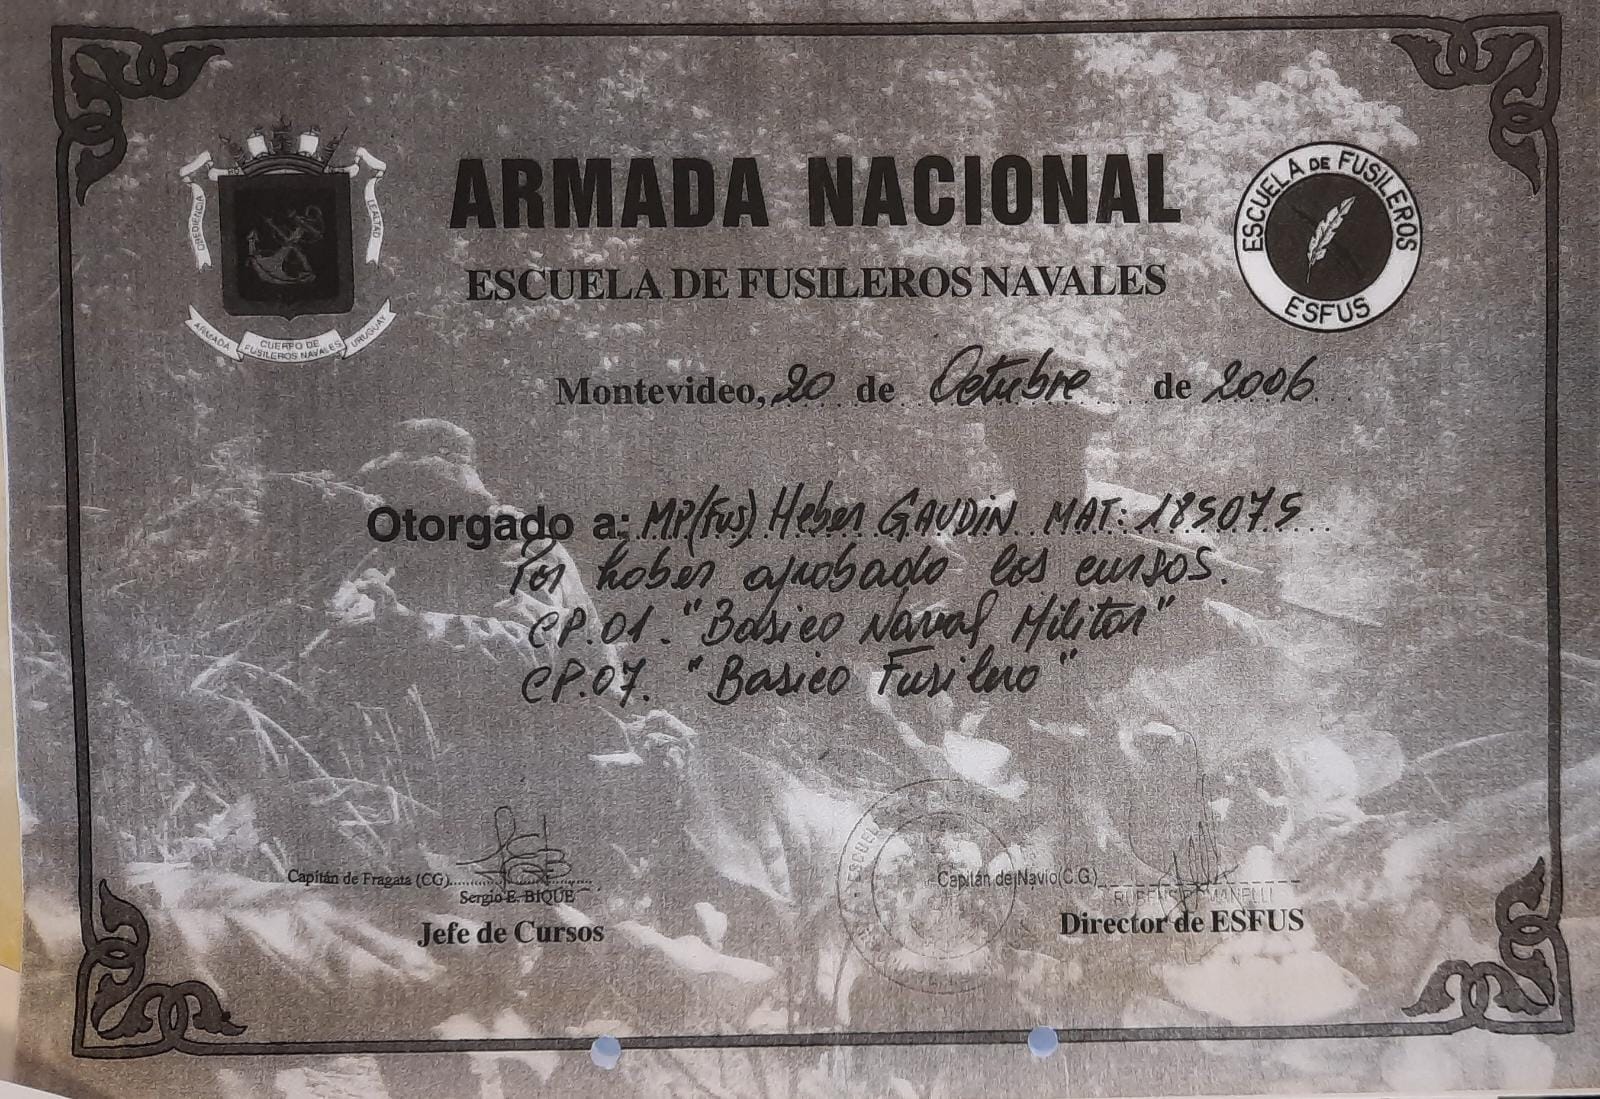 OBEDIENCIA
LEALTAD
ARMADA
CUERPO DE
FUSILEROS NAVALES
URUGUAY
ARMADA NACIONAL
ESCUELA DE FUSILEROS NAVALES
ESCUELA DE FUSILEROS
ESFUS
Montevideo, 20 de Octubre de 2006
Otorgado a: MP(Fus) Heber GAUDIN MAT: 185075
Por haber aprobado los cursos.
CP.01. "Basico Naval Militar"
CP.07. "Basico Fusilero"
Capitán de Fragata (CG)
Sergio E. BIQUE
Jefe de Cursos
ESCUEL
Capitán de Navio (C.G.)
RUBENS ROMANELLI
Director de ESFUS